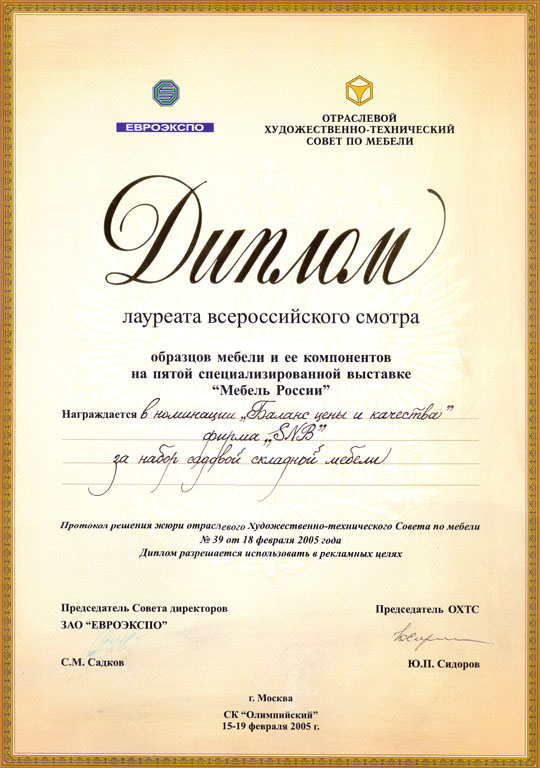 ЕВРОЭКСПО
ОТРАСЛЕВОЙ
ХУДОЖЕСТВЕННО-ТЕХНИЧЕСКИЙ
СОВЕТ ПО МЕБЕЛИ
Диплом
лауреата всероссийского смотра
образцов мебели и ее компонентов
на пятой специализированной выставке
“Мебель России”
Награждается в номинации „Баланс цены и качества”
фирма „SNB”
за набор садовой складной мебели
Протокол решения жюри отраслевого Художественно-технического Совета по мебели
№ 39 от 18 февраля 2005 года
Диплом разрешается использовать в рекламных целях
Председатель Совета директоров
ЗАО “ЕВРОЭКСПО”
С.М. Садков
Председатель ОХТС
Ю.П. Сидоров
г. Москва
СК “Олимпийский”
15-19 февраля 2005 г.